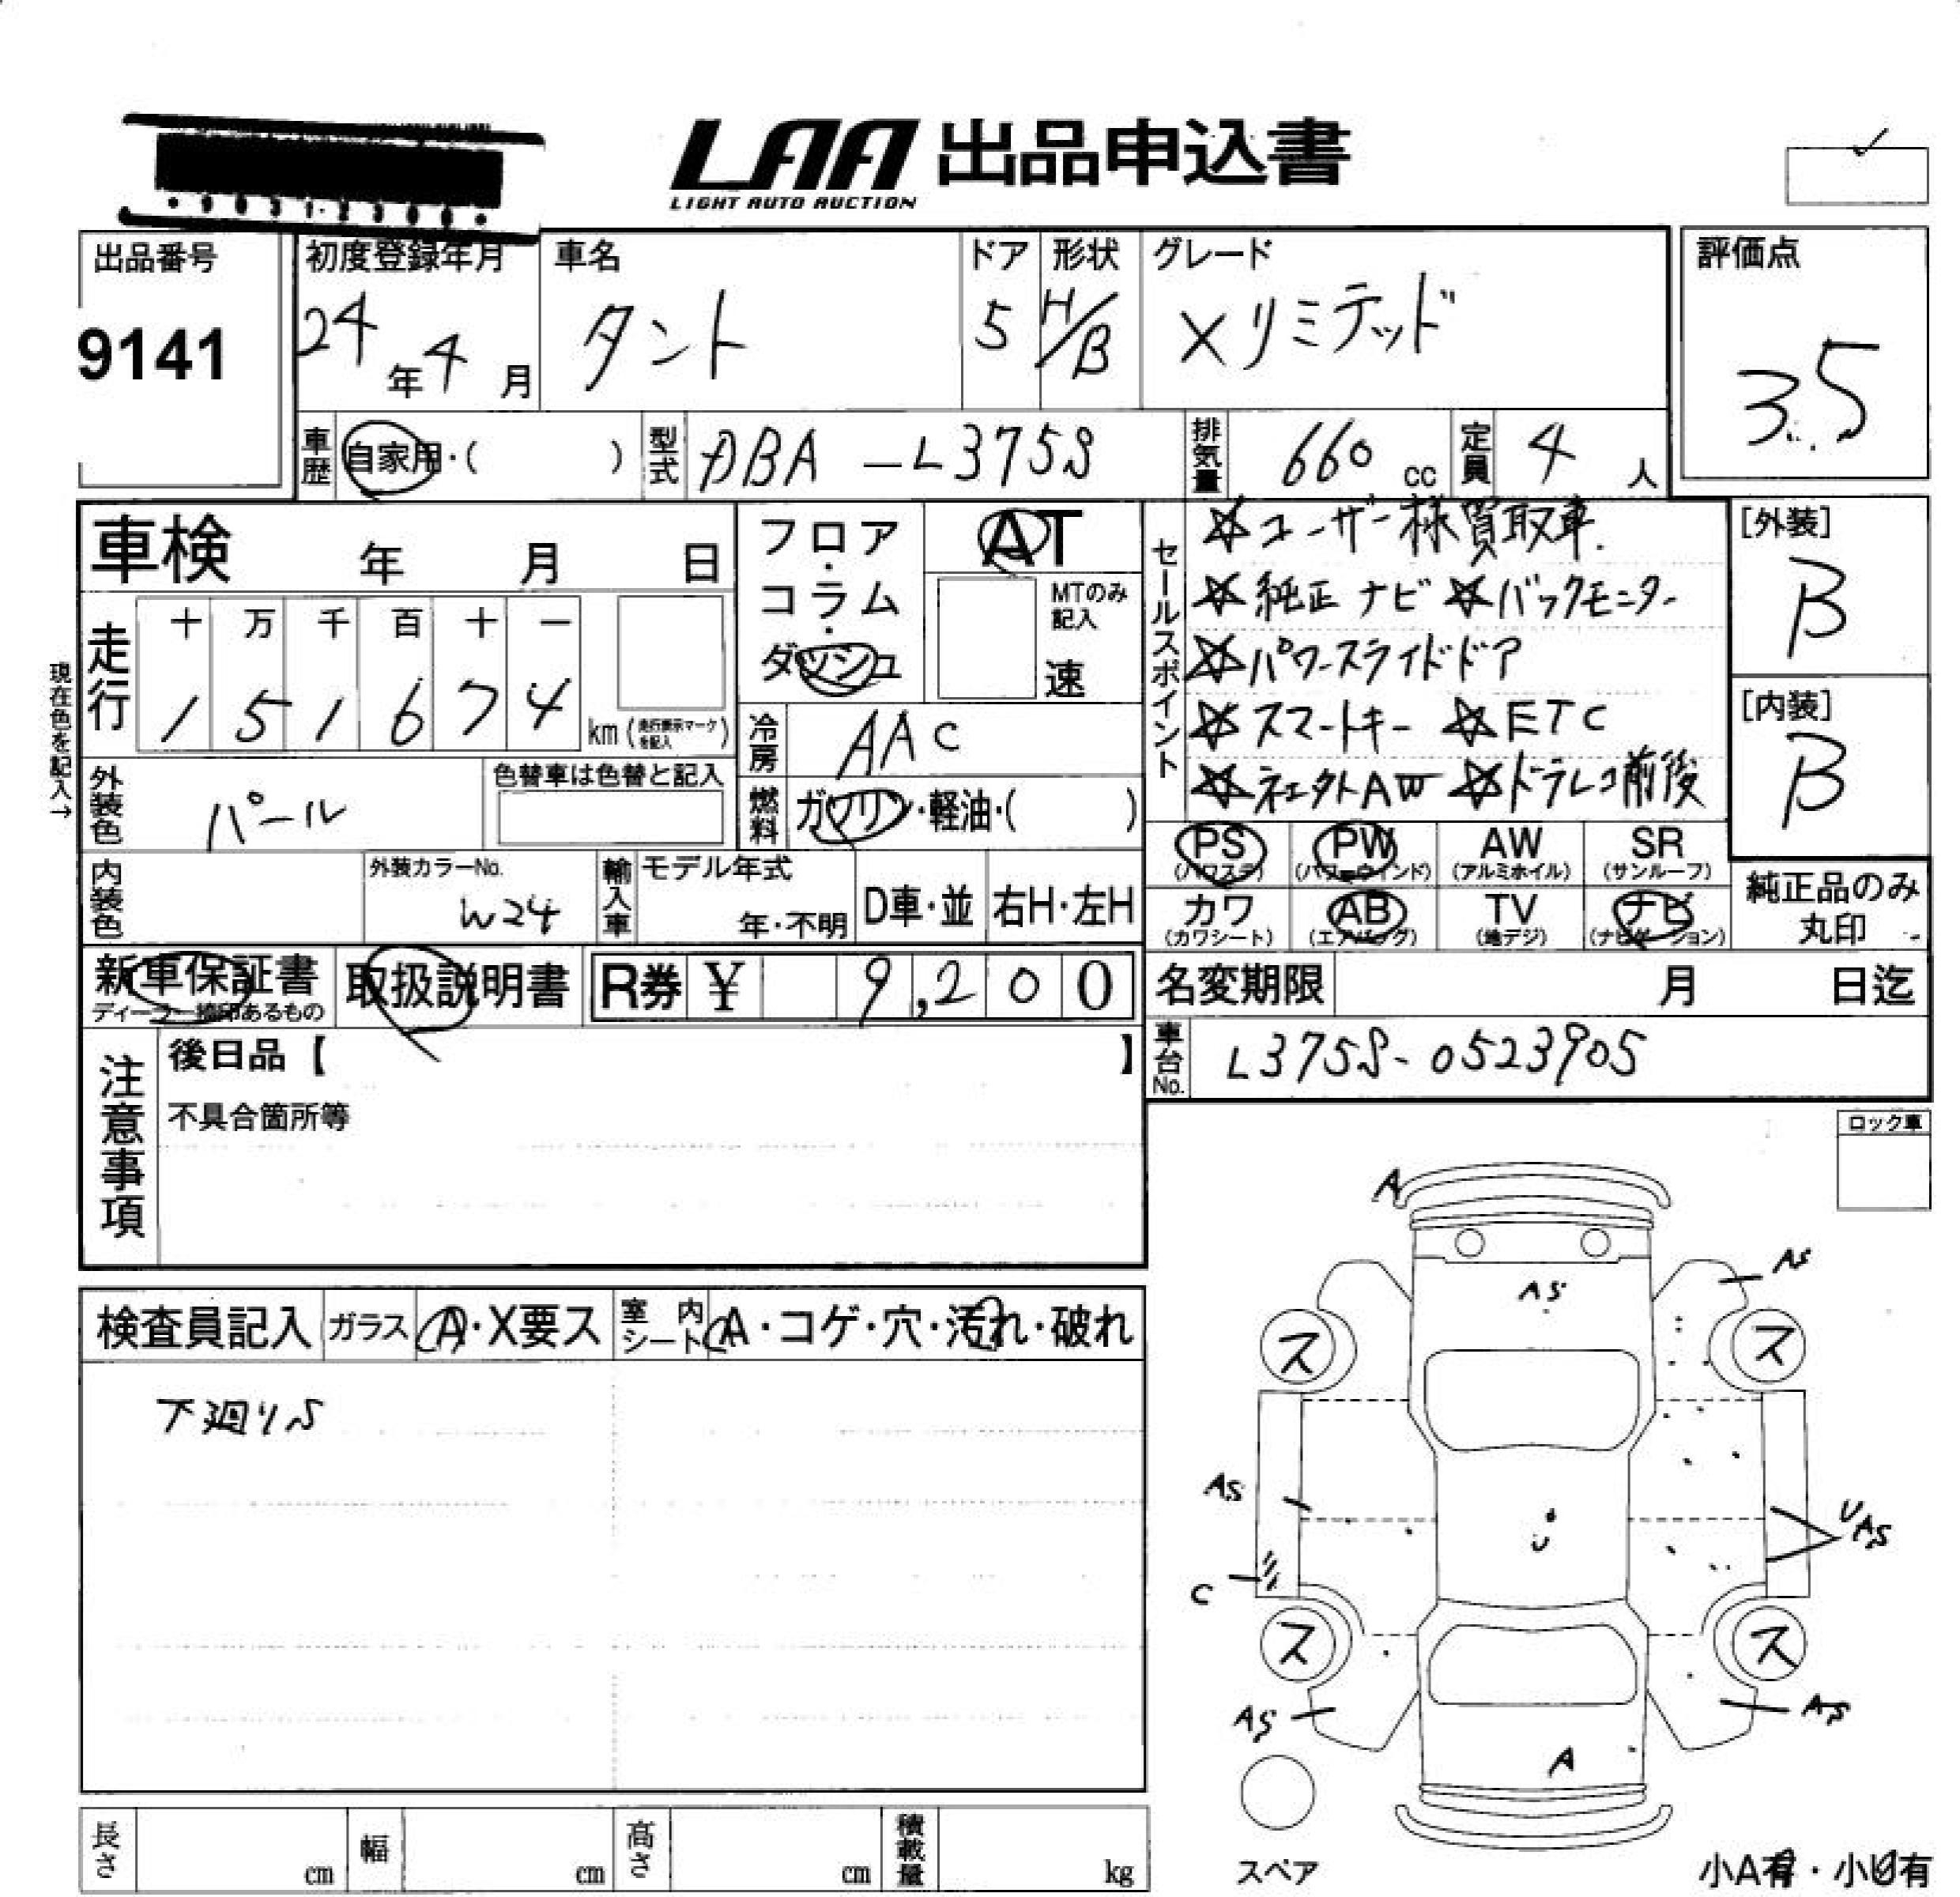 LAA 出品申込書
LIGHT AUTO AUCTION
出品番号
9141
初度登録年月
24年4月
車名
タント
ドア
5
形状
H/B
グレード
Xリミテッド
評価点
3.5
車歴
自家用・( )
型式
DBA-L375S
排気量
660 cc
定員
4人
車検 年 月 日
フロア・コラム・ダッシュ
AT
MTのみ記入
速
セールスポイント
☆ユーザー様買取車.
☆純正ナビ ☆バックモニター
☆パワースライドドア
☆スマートキー ☆ETC
☆社外AW ☆ドラレコ前後
[外装]
B
[内装]
B
現在色を記入→
走行
十 万 千 百 十 一
1 5 1 6 7 4
km (走行表示マークを記入)
冷房
AAC
外装色
パール
色替車は色替と記入
燃料
ガソリン・軽油・( )
PS (パワステ)
PW (パワーウインド)
AW (アルミホイル)
SR (サンルーフ)
カワ (カワシート)
AB (エアバッグ)
TV (地デジ)
ナビ (ナビゲーション)
純正品のみ丸印
内装色
外装カラーNo.
W24
輸入車
モデル年式
年・不明
D車・並
右H・左H
新車保証書
ディーラー捺印あるもの
取扱説明書
R券 ¥ 9,200
名変期限 月 日迄
車台No.
L375S-0523905
注意事項
後日品【 】
不具合箇所等
ロック車
検査員記入
ガラス
A・X要ス
室内シート
A・コゲ・穴・汚れ・破れ
下廻りS
A
AS
AS
ス
ス
AS
U
U
AS
C
ス
ス
AS
AS
A
スペア
小A有・小U有
長さ cm
幅 cm
高さ cm
積載量 kg